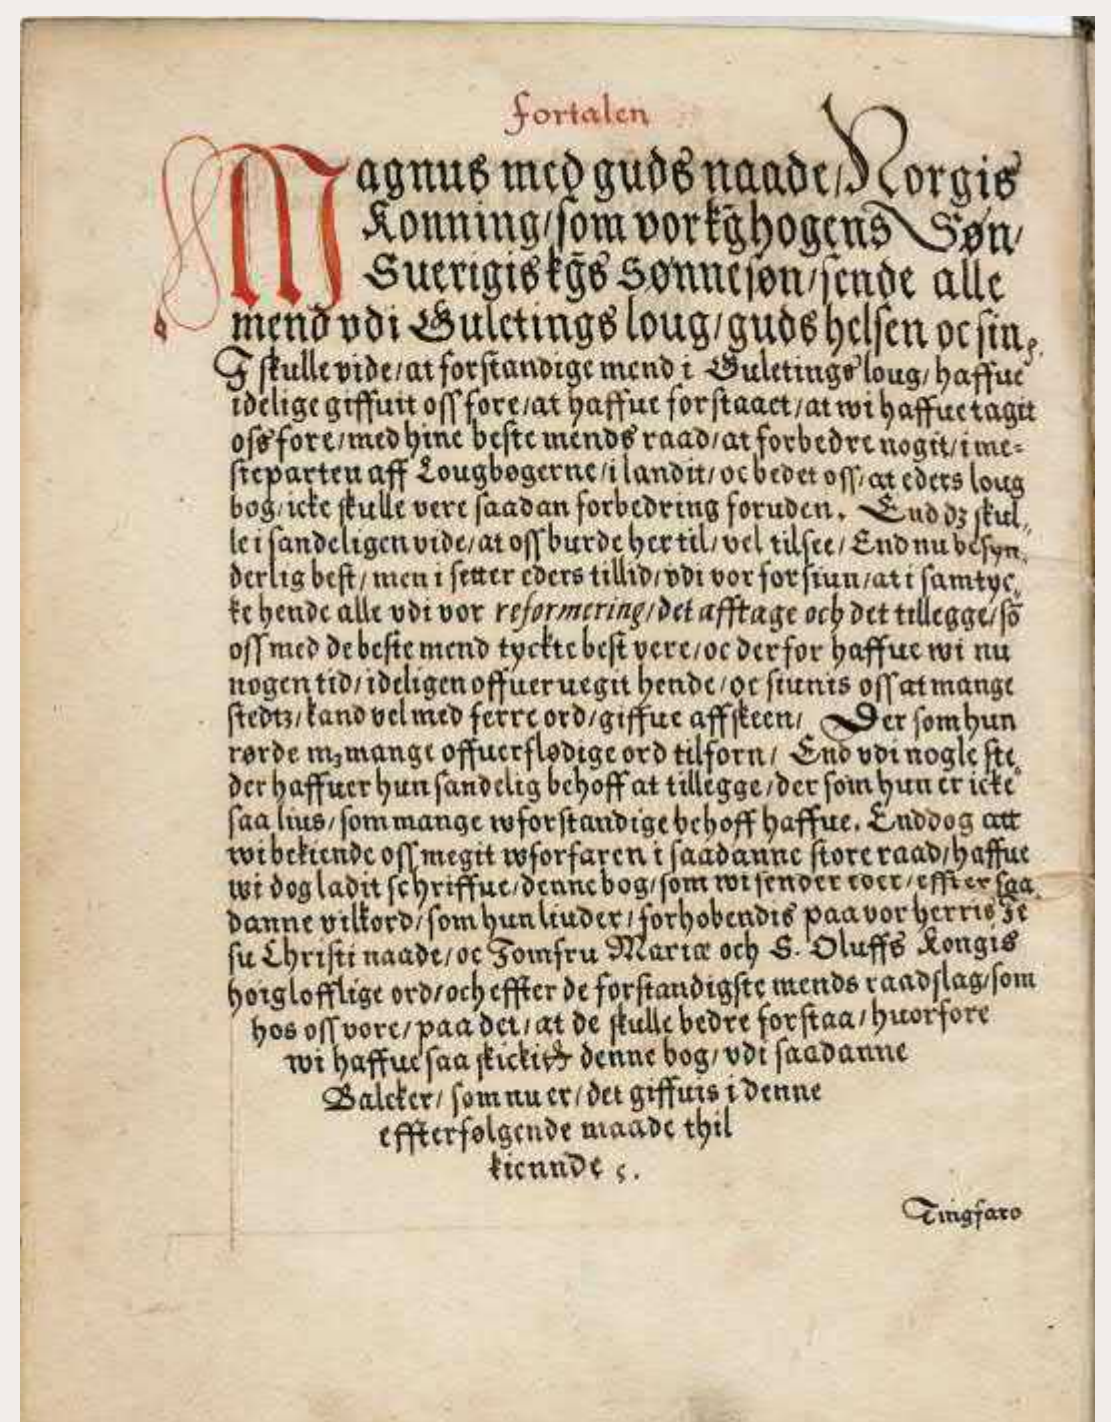 fortalen
Magnus med guds naade/ Norgis
Konning/ som vor kḡ hogens Søn/
Suerigis kḡs Sønnesøn/ sende alle
mend vdi Guletings loug/ guds helsen oc sin,
I skulle vide/ at forstandige mend i Guletings loug/ haffue
idelige giffuit oss fore/ at haffue forstaaet/ at wi haffue tagit
oss fore/ med hine beste mends raad/ at forbedre nogit/ i me=
steparten aff Lougbøgerne/ i landit/ oc bedet oss/ at eders loug
bog/ icke skulle vere saadan forbedring foruden. End dz skul,,
le i sandeligen vide/ at oss burde her til/ vel tilsee/ End nu besyn,
derlig best/ men i setter eders tillid/ vdi vor forsiun/ at i samtyc,
ke hende alle vdi vor reformering/ det afftage och det tillegge/ sō
oss med de beste mend tyckte best vere/ oc der for haffue wi nu
nogen tid/ ideligen offueruegit hende/ oc siunis oss at mange
stedtz/ kand vel med ferre ord/ giffue affskeen/ Der som hun
rørde mz mange offuerflødige ord tilforn/ End vdi nogle ste,
der haffuer hun sandelig behoff at tillegge/ der som hun er icke
saa lius/ som mange wforstandige behoff haffue. Enddog att
wi bekiende oss megit wforfaren i saadanne store raad/ haffue
wi dog ladit schriffue/ denne bog/ som wi sender eder/ effter saa,
danne vilkord/ som hun liuder/ forhobendis paa vor herris Je
su Christi naade/ oc Jomfru Mariæ och S. Oluffs Kongis
hoiglofflige ord/ och effter de forstandigste mends raadslag/ som
hos oss vore/ paa det/ at de skulle bedre forstaa/ huorfore
wi haffue saa skickit denne bog/ vdi saadanne
Balcker/ som nu er/ det giffuis i denne
effterfølgende maade thil
kiennde ς.
Tingfaro